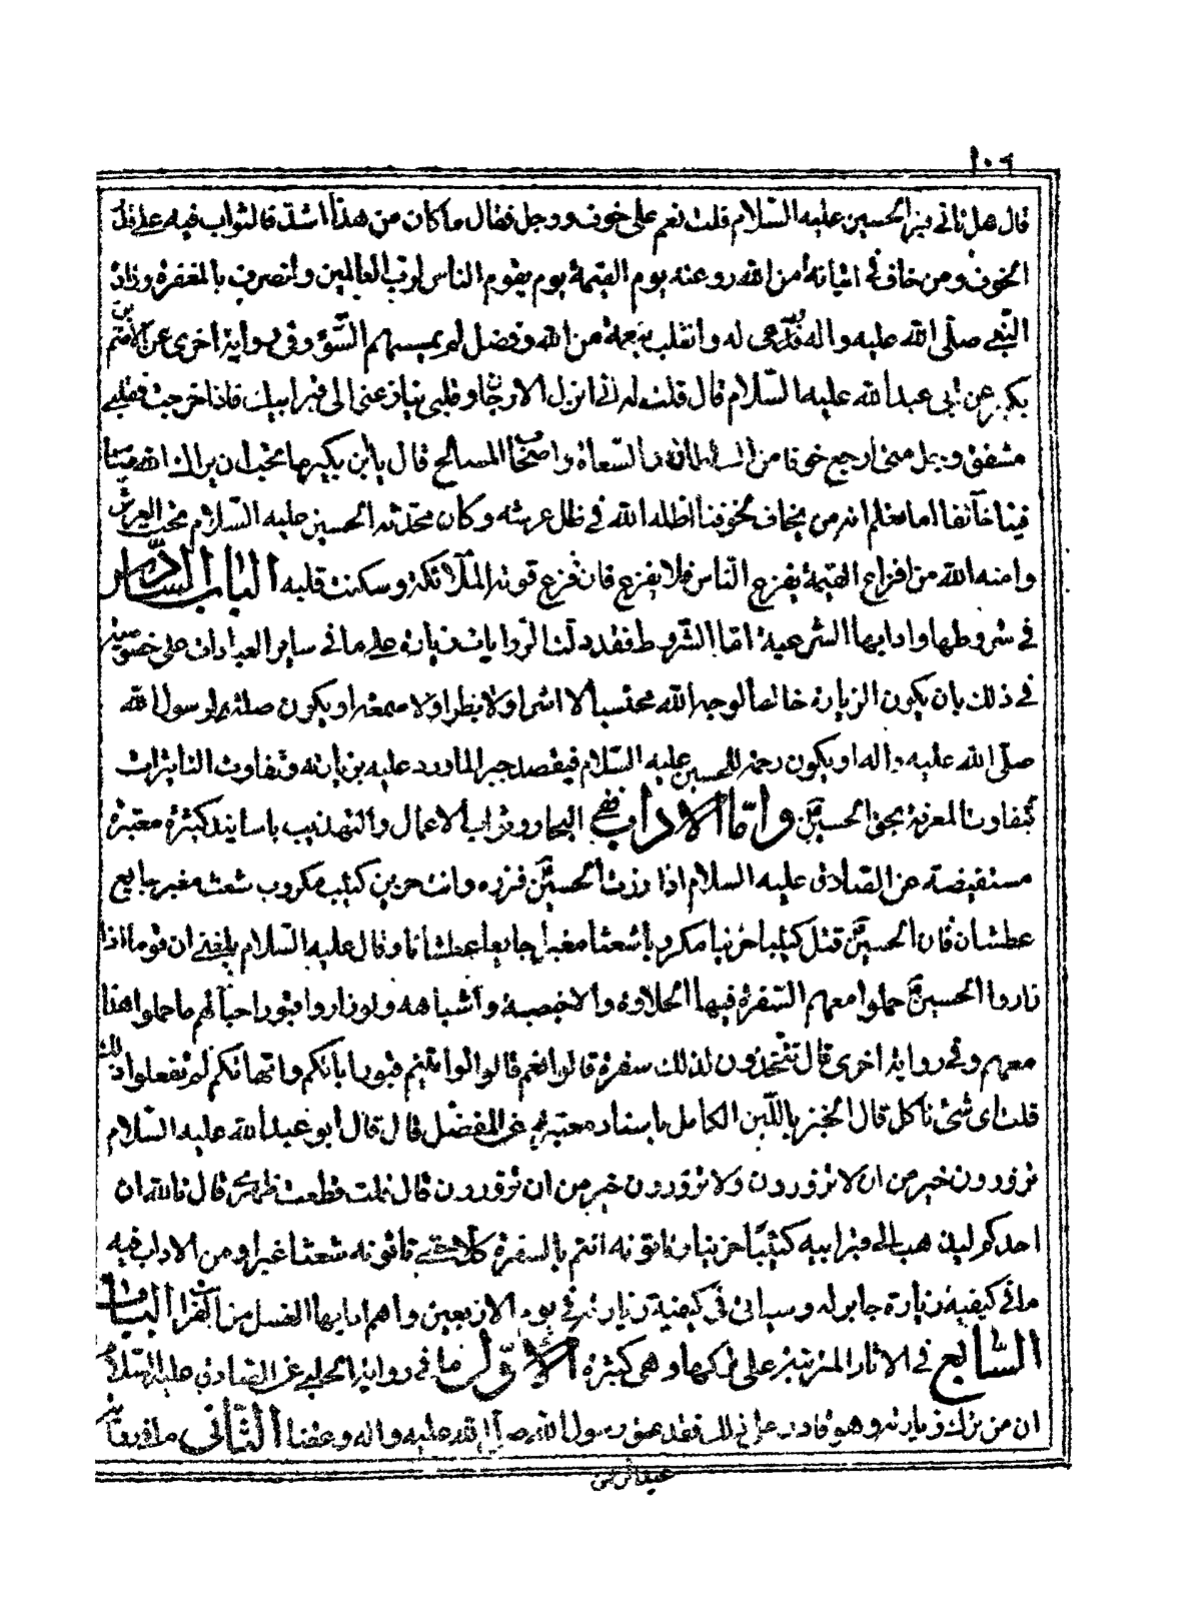 ١٠٦
قال هل تاتي قبر الحسين عليه السلام قلت نعم على خوف ووجل فقال ما كان من هذا اشد فالثواب فيه على قدر
الخوف ومن خاف في اتيانه أمن الله روعته يوم القيمة يوم يقوم الناس لرب العالمين وانصرف بالمغفرة وزاد
النبي صلى الله عليه واله ودعى له وانقلب بنعمة من الله وفضل لم يمسسهم السوء وفي رواية اخرى عن الاصم بن
بكير عن ابي عبد الله عليه السلام قال قلت له اني انزل الارجان وقلبي ينازعني الى قبر ابيك فاذا خرجت فقلبي
مشفق وجل حتى ارجع خوفا من السلطان والسعاة واصحاب المسالح قال يابن بكير اما تحب ان يراك الله فينا
فينا خآئفا اما تعلم انه من يخاف لخوفنا اظله الله في ظل عرشه وكان محدثه الحسين عليه السلام تحت العرش
وامنه الله من افزاع القيمة يفزع الناس فلا يفزع فان فزع قوته الملآئكة وسكنت قلبه الباب السادس
في شروطها وادابها الشرعية امّا الشروط فقد دلت الروايات زيادة على ما في ساير العبادات على خصوصية
في ذلك بان يكون الزيارة خالصا لوجه الله محتسبا لا اشرا ولا بطرا ولا سمعة او يكون صلة لرسول الله
صلى الله عليه واله او يكون رحمة للحسين عليه السلام فيقصد جبر الما ورد عليه بزيارته وتفاوت التاثيرات
بتفاوت المعرفة بحق الحسين ع وامّا الاداب ففي البحار وثواب الاعمال والتهذيب باسانيد كثيرة معتبرة
مستفيضة عن الصادق عليه السلام اذا زرت الحسين ع فزره وانت حزين كئيب مكروب شعث مغبر جايع
عطشان فان الحسين ع قتل كئيبا حزينا مكروبا شعثا مغبرا جايعا عطشانا وقال عليه السلام بلغني ان قوما اذا
زاروا الحسين ع حملوا معهم السفرة فيها الحلاوة والاخبصة وأشباهه ولو زاروا قبور احبآئهم ما حملوا هذا
معهم وفي رواية اخرى قال تتخذون لذلك سفرة قالوا نعم قال لو اتيتم قبور ابائكم وامهاتكم لم تفعلوا ذلك
قلت اى شئ ناكل قال الخبز باللبن الكامل باسناد معتبرة عن المفضل قال قال أبو عبد الله عليه السلام
تزورون خير من ان لا تزورون ولا تزورون خير من ان تزورون قال قلت قطعت ظهرى قال تالله ان
احدكم ليذهب الى قبر ابيه كئيبا حزينا وتاتونه انتم بالسفرة كلا حتى تاتونه شعثا غبرا ومن الاداب فيه
ما في كيفية زيارة جابر له وسياتى في كيفية زيارته في يوم الاربعين وأهم ادابها الغسل من الفرات الباب
السابع في الاثار المترتبة على تركها وهى كثيرة الاول ما في رواية الحلبي عن الصادق عليه السلام
ان من ترك زيارته وهو قادر على ذلك فقد عق رسول الله صلى الله عليه واله وعقنا الثاني ما في بعضها